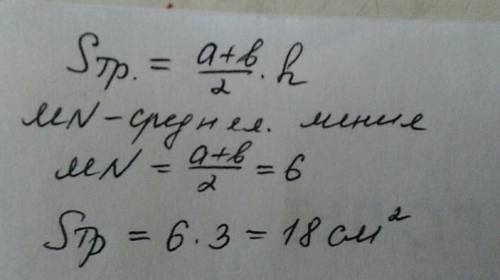 Sтр. = a+b/2 · h
MN – средняя. линия
MN = a+b/2 = 6
Sтр = 6 · 3 = 18 см²